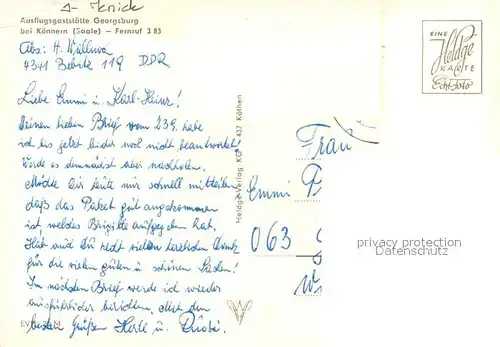 Ausflugsgaststätte Georgsburg
bei Könnern (Saale) – Fernruf 3 83
Abs: H. Wallner
4341 Bebitz 119 DDR
Liebe Emmi u. Karl-Heinz!
Deinen lieben Brief vom 23.9. habe
ich bis jetzt leider noch nicht beantwortet!
Werde es demnächst aber nachholen.
Möchte Dir heute nur schnell mitteilen
daß das Paket gut angekommen
ist, welches Brigitte aufgegeben hat.
Hab auch Du recht vielen herzlichen Dank
für die vielen guten u. schönen Sachen!
Im nächsten Brief werde ich wieder
ausführlicher berichten. Mit den
besten Grüßen Horst u.
EINE
Heldge
KARTE
Echt Foto
Heldge-Verlag KG 437 Köthen
Frau
Emmi
063
privacy protection
Datenschutz